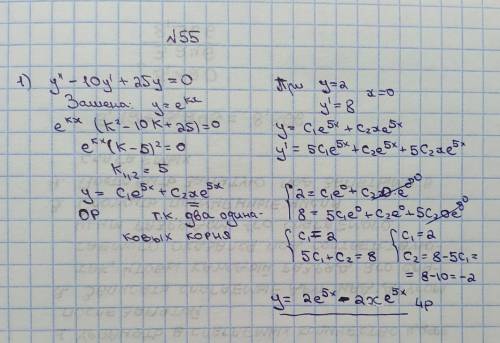 №55
1) y'' - 10y' + 25y = 0
Замена: y = e^{kx}
e^{kx} (k² - 10k + 25) = 0
e^{kx} (k - 5)² = 0
k_{1,2} = 5
y = C₁e^{5x} + C₂xe^{5x}
ОР т.к. два одина-
ковых корня
При y = 2
y' = 8 x = 0
y = C₁e^{5x} + C₂xe^{5x}
y' = 5C₁e^{5x} + C₂e^{5x} + 5C₂xe^{5x}
{ 2 = C₁e⁰ + C₂·0·e⁰ 0
8 = 5C₁e⁰ + C₂e⁰ + 5C₂·0·e⁰ 0
{ C₁ = 2 { C₁ = 2
5C₁ + C₂ = 8 C₂ = 8 - 5C₁ =
= 8 - 10 = -2
y = 2e^{5x} - 2xe^{5x} ЧР